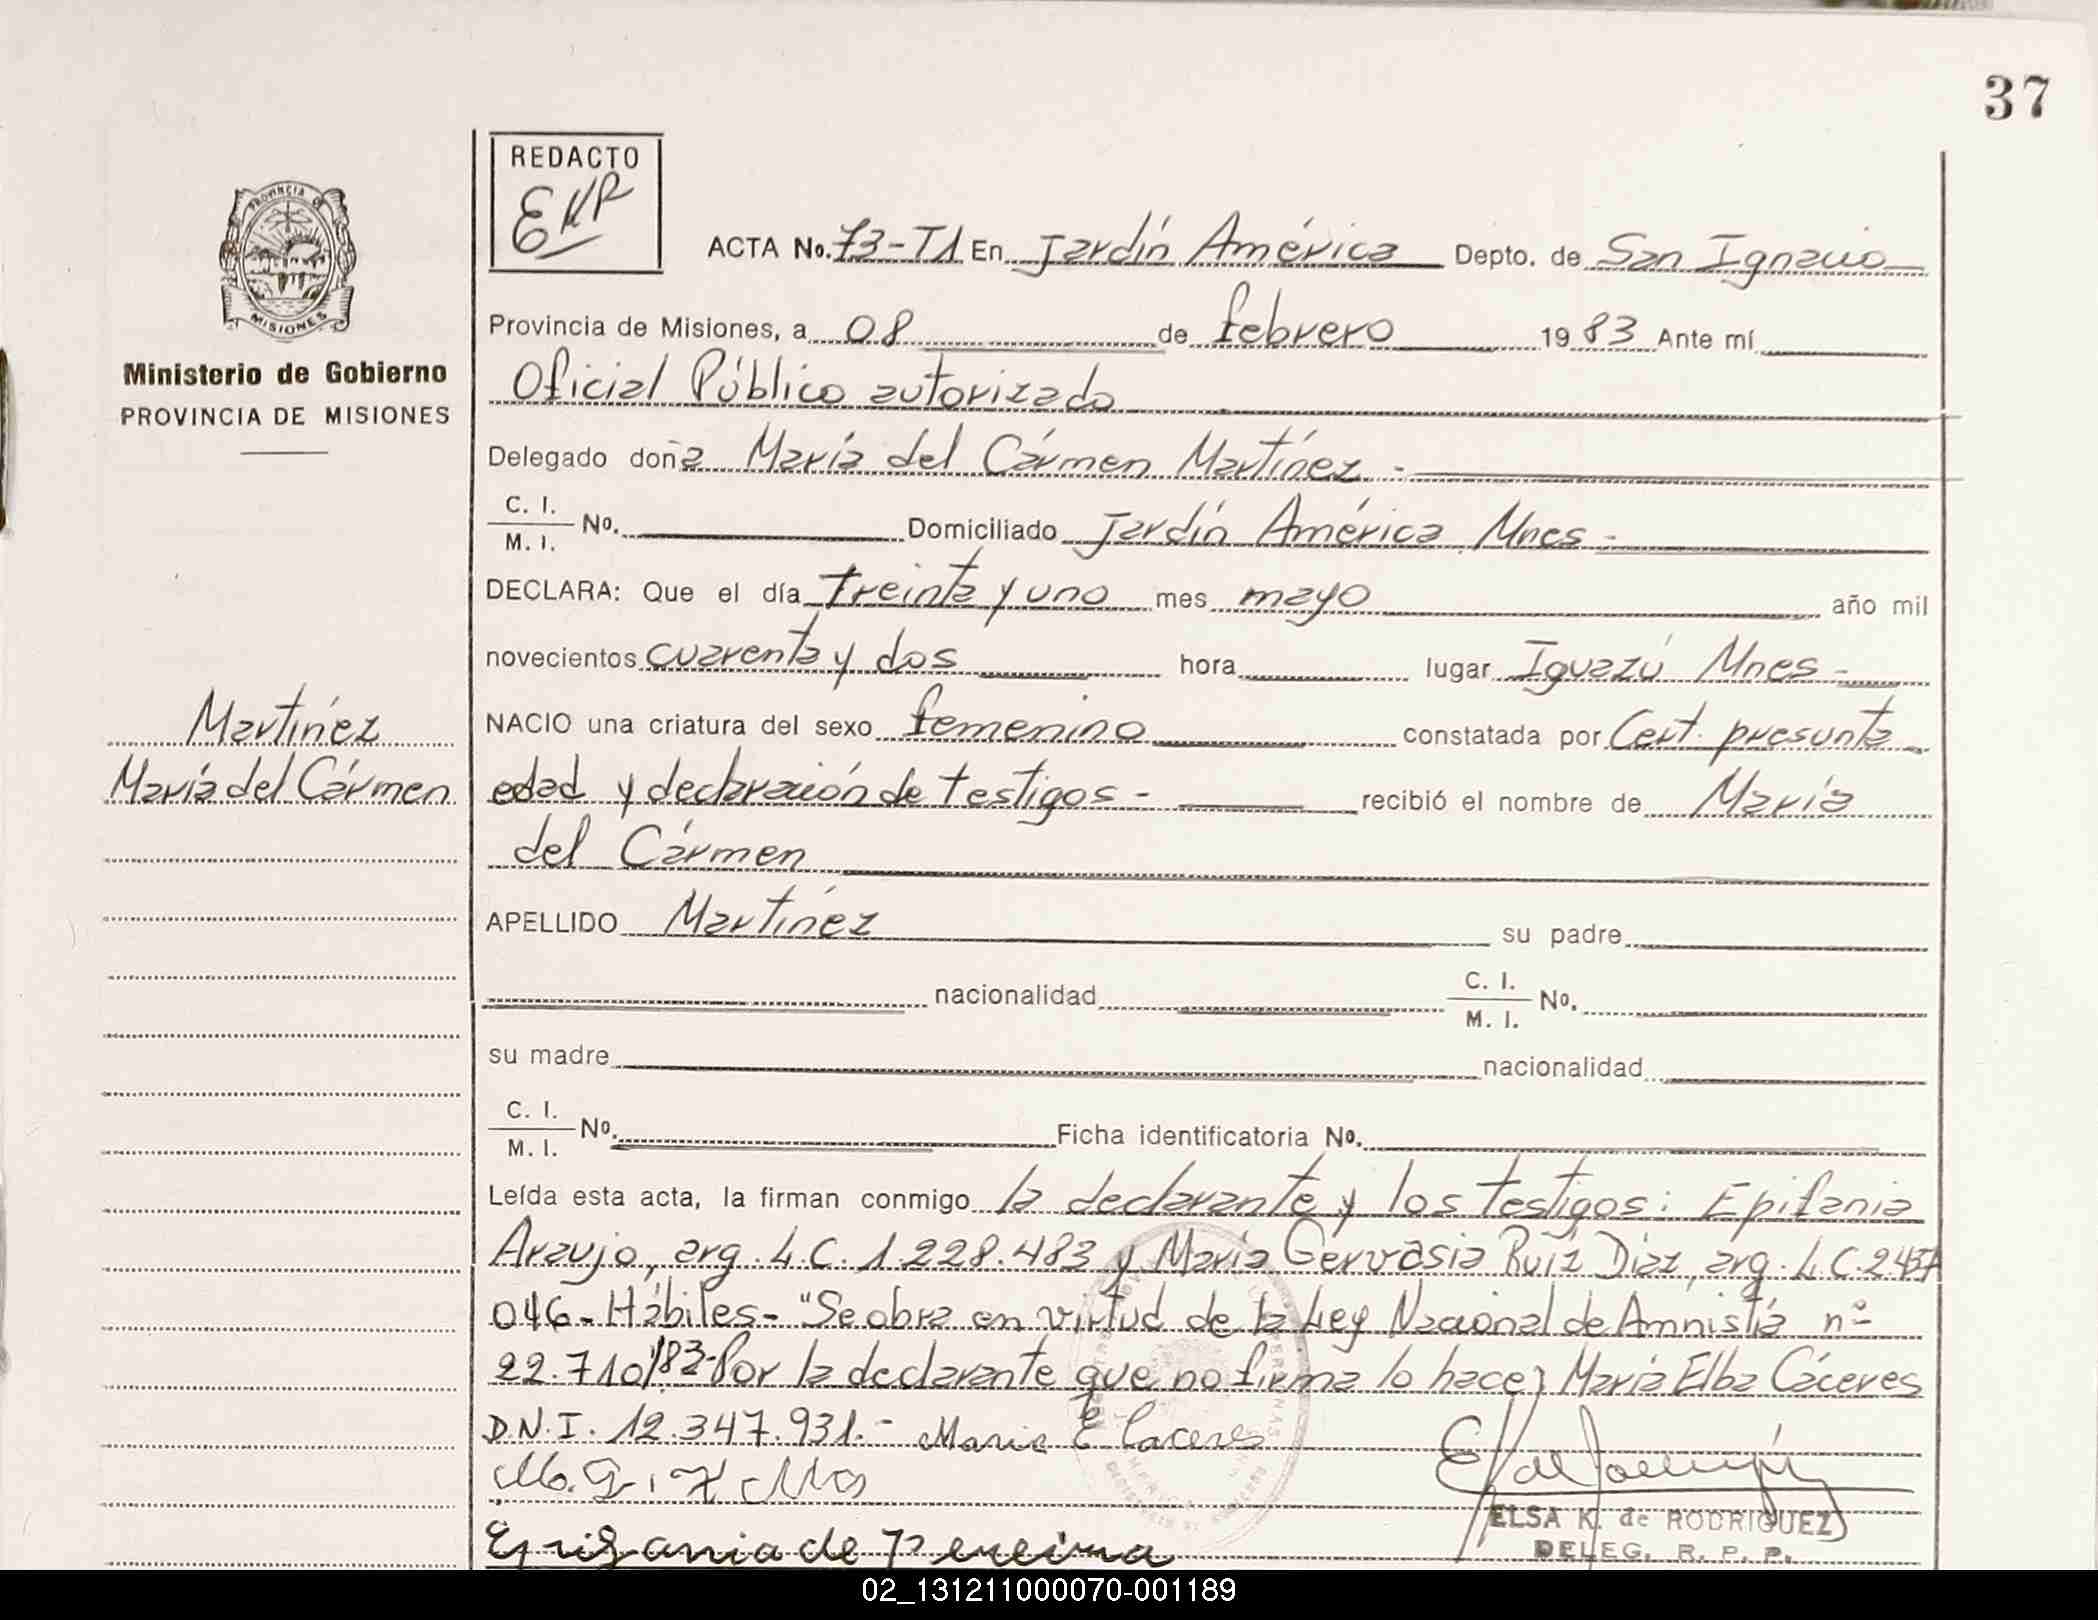 37
PROVINCIA DE
MISIONES
Ministerio de Gobierno
PROVINCIA DE MISIONES
Martínez
María del Cármen
REDACTO
EKR
ACTA No. 73-T1 En Jardín América Depto. de San Ignacio
Provincia de Misiones, a 08 de febrero 1983 Ante mí
Oficial Público autorizado
Delegado doña María del Cármen Martínez -
C. I.
M. I. No. Domiciliado Jardín América Mnes -
DECLARA: Que el día treinta y uno mes mayo año mil
novecientos cuarenta y dos hora lugar Iguazú Mnes -
NACIO una criatura del sexo femenino constatada por Cert. presunta
edad y declaración de testigos - recibió el nombre de María
del Cármen
APELLIDO Martínez su padre
nacionalidad C. I. M. I. No.
su madre nacionalidad
C. I.
M. I. No. Ficha identificatoria No.
Leída esta acta, la firman conmigo la declarante y los testigos: Epifania
Araujo, arg. L.C. 1.228.483 y María Gervasia Ruíz Díaz, arg. L.C. 2.437
046 - Hábiles - "Se obra en virtud de la Ley Nacional de Amnistía nº
22.710/83 - Por la declarante que no firma lo hace, María Elba Cáceres
D.N.I. 12.347.931.- Maria E Caceres
ELSA K. de RODRIGUEZ
DELEG. R. P. P.
Epifania de Pereira
02_131211000070-001189